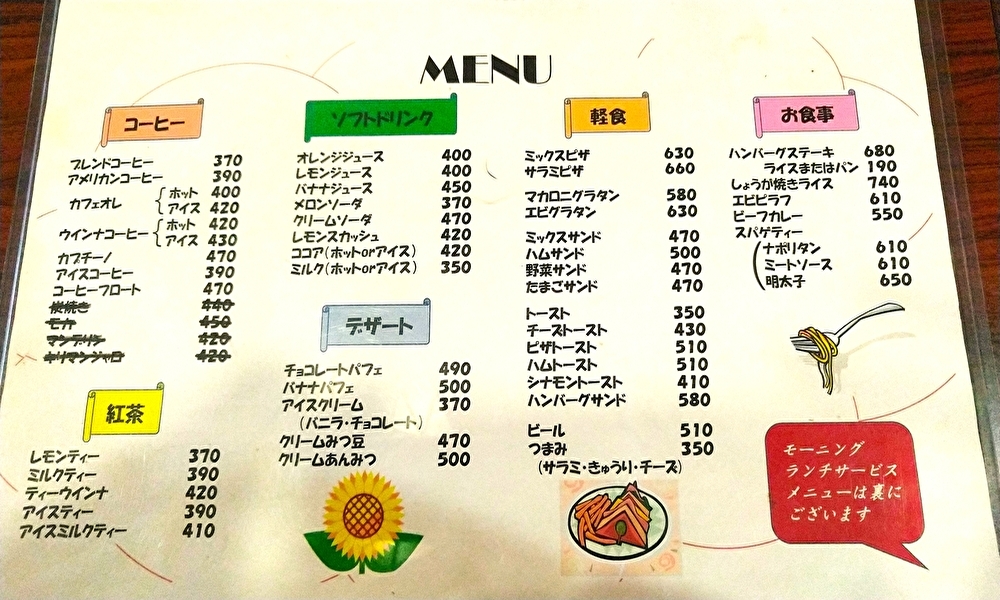 MENU
コーヒー
ブレンドコーヒー 370
アメリカンコーヒー 390
カフェオレ ホット 400
アイス 420
ウインナコーヒー ホット 420
アイス 430
カプチーノ 470
アイスコーヒー 390
コーヒーフロート 470
炭焼き 440
モカ 450
マンデリン 420
キリマンジャロ 420
紅茶
レモンティー 370
ミルクティー 390
ティーウインナ 420
アイスティー 390
アイスミルクティー 410
ソフトドリンク
オレンジジュース 400
レモンジュース 400
バナナジュース 450
メロンソーダ 370
クリームソーダ 470
レモンスカッシュ 420
ココア(ホットorアイス) 420
ミルク(ホットorアイス) 350
デザート
チョコレートパフェ 490
バナナパフェ 500
アイスクリーム 370
(バニラ・チョコレート)
クリームみつ豆 470
クリームあんみつ 500
軽食
ミックスピザ 630
サラミピザ 660
マカロニグラタン 580
エビグラタン 630
ミックスサンド 470
ハムサンド 500
野菜サンド 470
たまごサンド 470
トースト 350
チーズトースト 430
ピザトースト 510
ハムトースト 510
シナモントースト 410
ハンバーグサンド 580
ビール 510
つまみ 350
(サラミ・きゅうり・チーズ)
お食事
ハンバーグステーキ 680
ライスまたはパン 190
しょうが焼きライス 740
エビピラフ 610
ビーフカレー 550
スパゲティー
ナポリタン 610
ミートソース 610
明太子 650
モーニング
ランチサービス
メニューは裏に
ございます